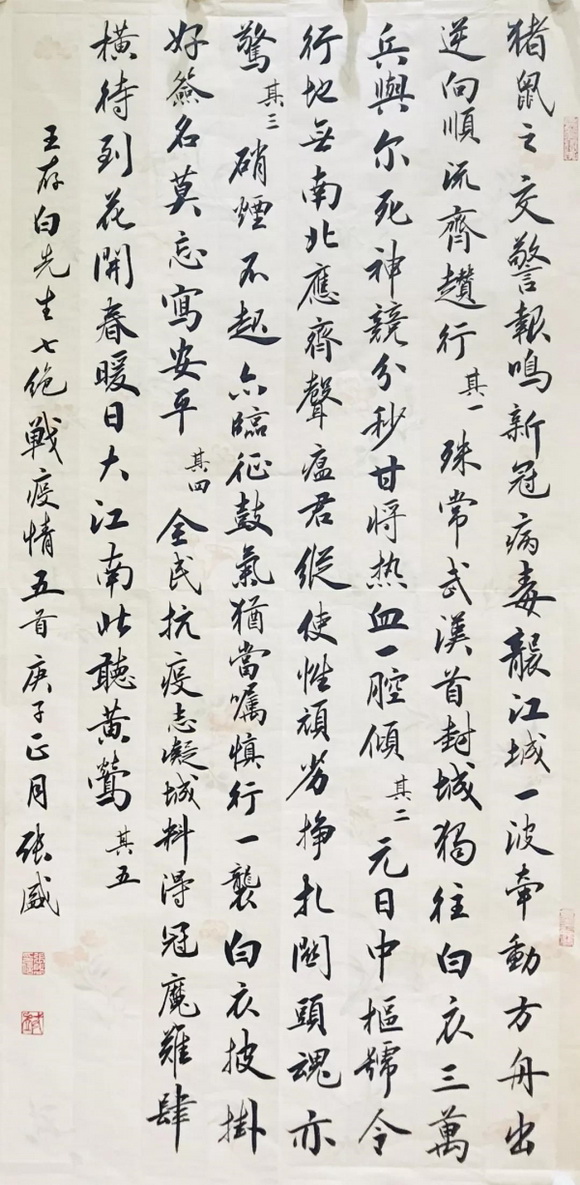 猪鼠之交警報鳴新冠病毒襲江城一波牵動方舟出
逆向順流齊趲行 其一 殊常武漢首封城獨往白衣三萬
兵與尔死神競分秒甘将热血一腔傾 其二 元日中樞號令
行地無南北應齊聲瘟君縱使性頑劣挣扎関頭魂亦
驚 其三 硝煙不起亦臨征鼓氣猶當囑慎行一襲白衣披掛
好簽名莫忘寫安平 其四 全民抗疫志凝城料得冠魔難肆
橫待到花開春暖日大江南北聽黄鶯 其五
王存白先生七绝戰疫情五首庚子正月張